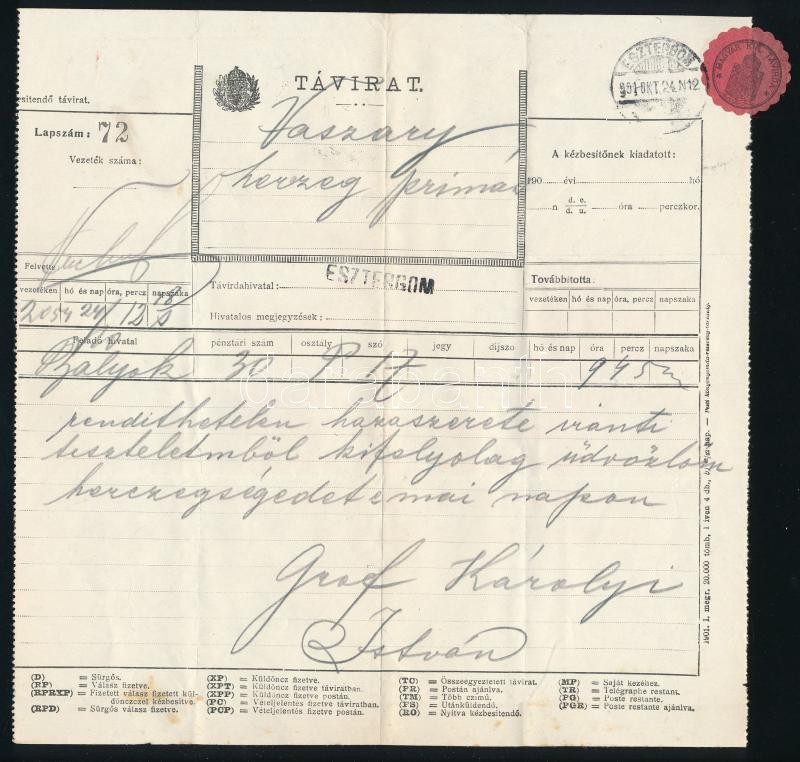 TÁVIRAT.
ESZTERGOM
901 OKT. 24 N12
MAGYAR KIR. TÁVIRDA
esitendő távirat.
Lapszám: 72
Vezeték száma:
Vaszary
herzeg primás
A kézbesítőnek kiadatott:
190 évi hó
n d. e. / d. u. óra perczkor.
Felvette
vezetéken hó és nap óra, percz napszaka
2054 24/10 12 12
Távirdahivatal: ESZTERGOM
Hivatalos megjegyzések:
Továbbította:
vezetéken hó és nap óra, percz napszaka
Feladó hivatal pénztári szám osztaly szó jegy díjszó hó és nap óra percz napszaka
30 P 17 9 45
rendithetelen hazaszerete iránti
tiszteletmböl kifolyolag üdvözlom
herczegségedet e mai napon
Grof Károlyi
István
(D) = Sürgős.
(RP) = Válasz fizetve.
(RPRXP) = Fizetett válasz fizetett küldönczczel kézbesitve.
(RPD) = Sürgős válasz fizetve.
(XP) = Küldöncz fizetve.
(XPT) = Küldöncz fizetve táviratban.
(XPP) = Küldöncz fizetve postán.
(PC) = Vételjelentés fizetve táviratban.
(PCP) = Vételjelentés fizetve postán.
(TC) = Összeegyeztetett távirat.
(PR) = Postán ajánlva.
(TM) = Több czimű.
(FS) = Utánküldendő.
(RO) = Nyitva kézbesitendő.
(MP) = Saját kezéhez.
(TR) = Télégraphe restant.
(PG) = Poste restante.
(PGR) = Poste restante ajánlva.
1901. I. megr. 20.000 tömb, 1 iven 4 db.,
darabanth